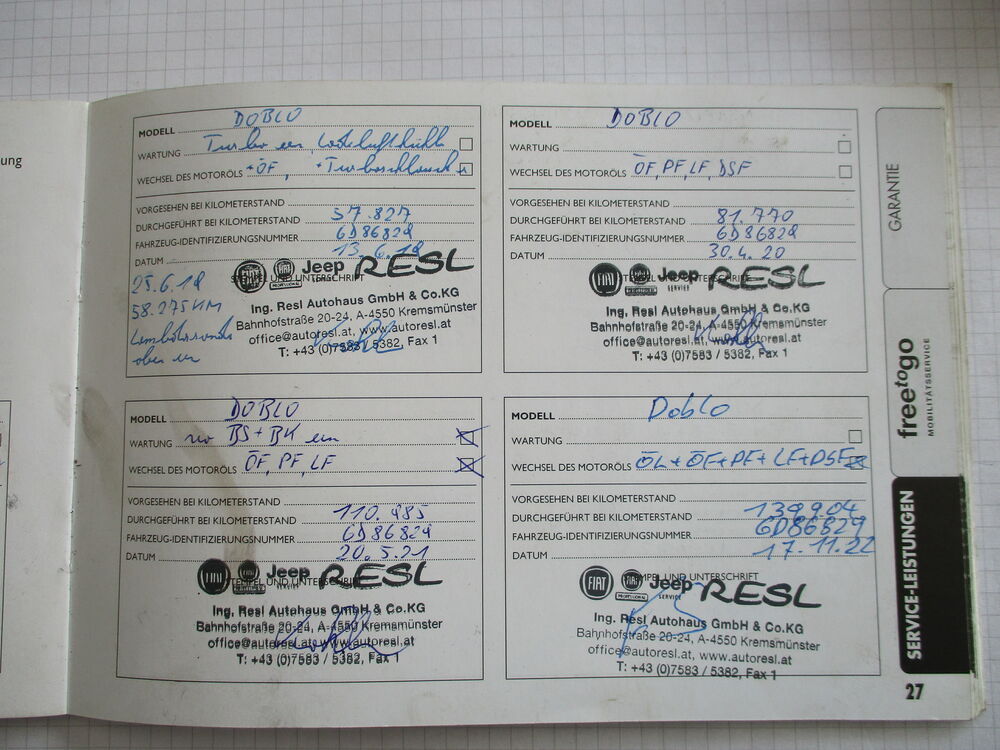 ung
MODELL DOBLO
WARTUNG Turbo en Ladeluftkühler
WECHSEL DES MOTORÖLS + ÖF, + Turboschlauch
VORGESEHEN BEI KILOMETERSTAND
DURCHGEFÜHRT BEI KILOMETERSTAND 57.827
FAHRZEUG-IDENTIFIZIERUNGSNUMMER 6D86829
DATUM 13.6.18
STEMPEL UND UNTERSCHRIFT
Jeep RESL
PROFESSIONAL
Ing. Resl Autohaus GmbH & Co.KG
Bahnhofstraße 20-24, A-4550 Kremsmünster
office@autoresl.at, www.autoresl.at
T: +43 (0)7583 / 5382, Fax 1
25.6.18
58.275 KM
oben
MODELL DOBLO
WARTUNG
WECHSEL DES MOTORÖLS ÖF, PF, LF, DSF
VORGESEHEN BEI KILOMETERSTAND
DURCHGEFÜHRT BEI KILOMETERSTAND 81.770
FAHRZEUG-IDENTIFIZIERUNGSNUMMER 6D86829
DATUM 30.4.20
STEMPEL UND UNTERSCHRIFT
FIAT Jeep RESL
PROFESSIONAL SERVICE
Ing. Resl Autohaus GmbH & Co.KG
Bahnhofstraße 20-24, A-4550 Kremsmünster
office@autoresl.at, www.autoresl.at
T: +43 (0)7583 / 5382, Fax 1
MODELL DOBLO
WARTUNG BS + BK
WECHSEL DES MOTORÖLS ÖF, PF, LF
VORGESEHEN BEI KILOMETERSTAND
DURCHGEFÜHRT BEI KILOMETERSTAND 110.485
FAHRZEUG-IDENTIFIZIERUNGSNUMMER 6D86829
DATUM 20.5.21
STEMPEL UND UNTERSCHRIFT
FIAT Jeep RESL
SERVICE
Ing. Resl Autohaus GmbH & Co.KG
Bahnhofstraße 20-24, A-4550 Kremsmünster
office@autoresl.at, www.autoresl.at
T: +43 (0)7583 / 5382, Fax 1
MODELL Doblo
WARTUNG
WECHSEL DES MOTORÖLS ÖL + ÖF + PF + LF + DSF
VORGESEHEN BEI KILOMETERSTAND
DURCHGEFÜHRT BEI KILOMETERSTAND 139904
FAHRZEUG-IDENTIFIZIERUNGSNUMMER 6D86829
DATUM 17.11.22
STEMPEL UND UNTERSCHRIFT
FIAT Jeep RESL
PROFESSIONAL SERVICE
Ing. Resl Autohaus GmbH & Co.KG
Bahnhofstraße 20-24, A-4550 Kremsmünster
office@autoresl.at, www.autoresl.at
T: +43 (0)7583 / 5382, Fax 1
GARANTIE
freetogo
MOBILITÄTSSERVICE
SERVICE-LEISTUNGEN
27